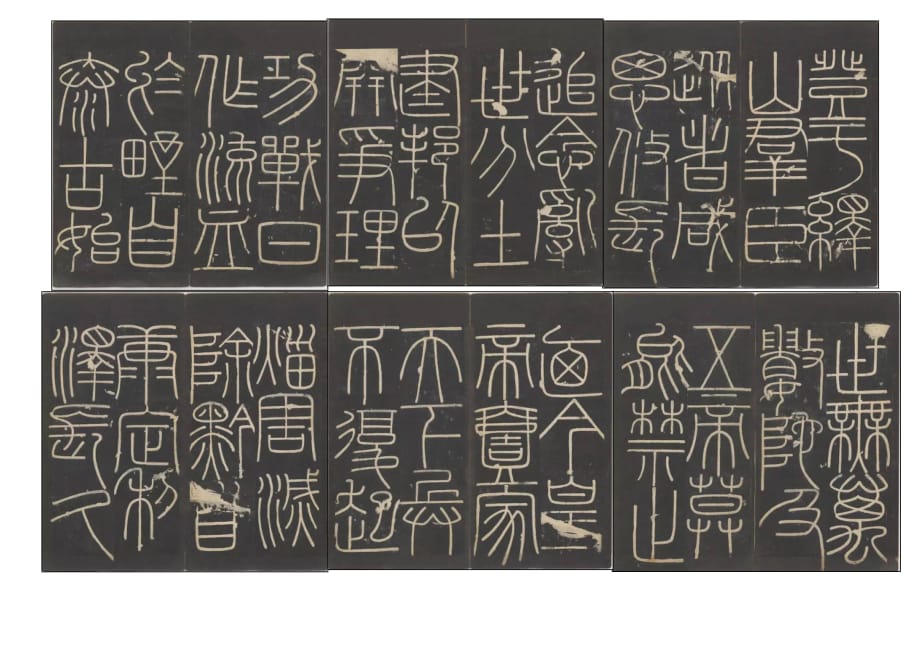 登于繹
山群臣
從者咸
思攸長
追念亂
世分土
建邦以
開爭理
功戰日
作流血
於野自
泰古始
世無萬
數陀及
五帝莫
能禁止
廼今皇
帝壹家
天下兵
不復起
災害滅
除黔首
康定利
澤長久